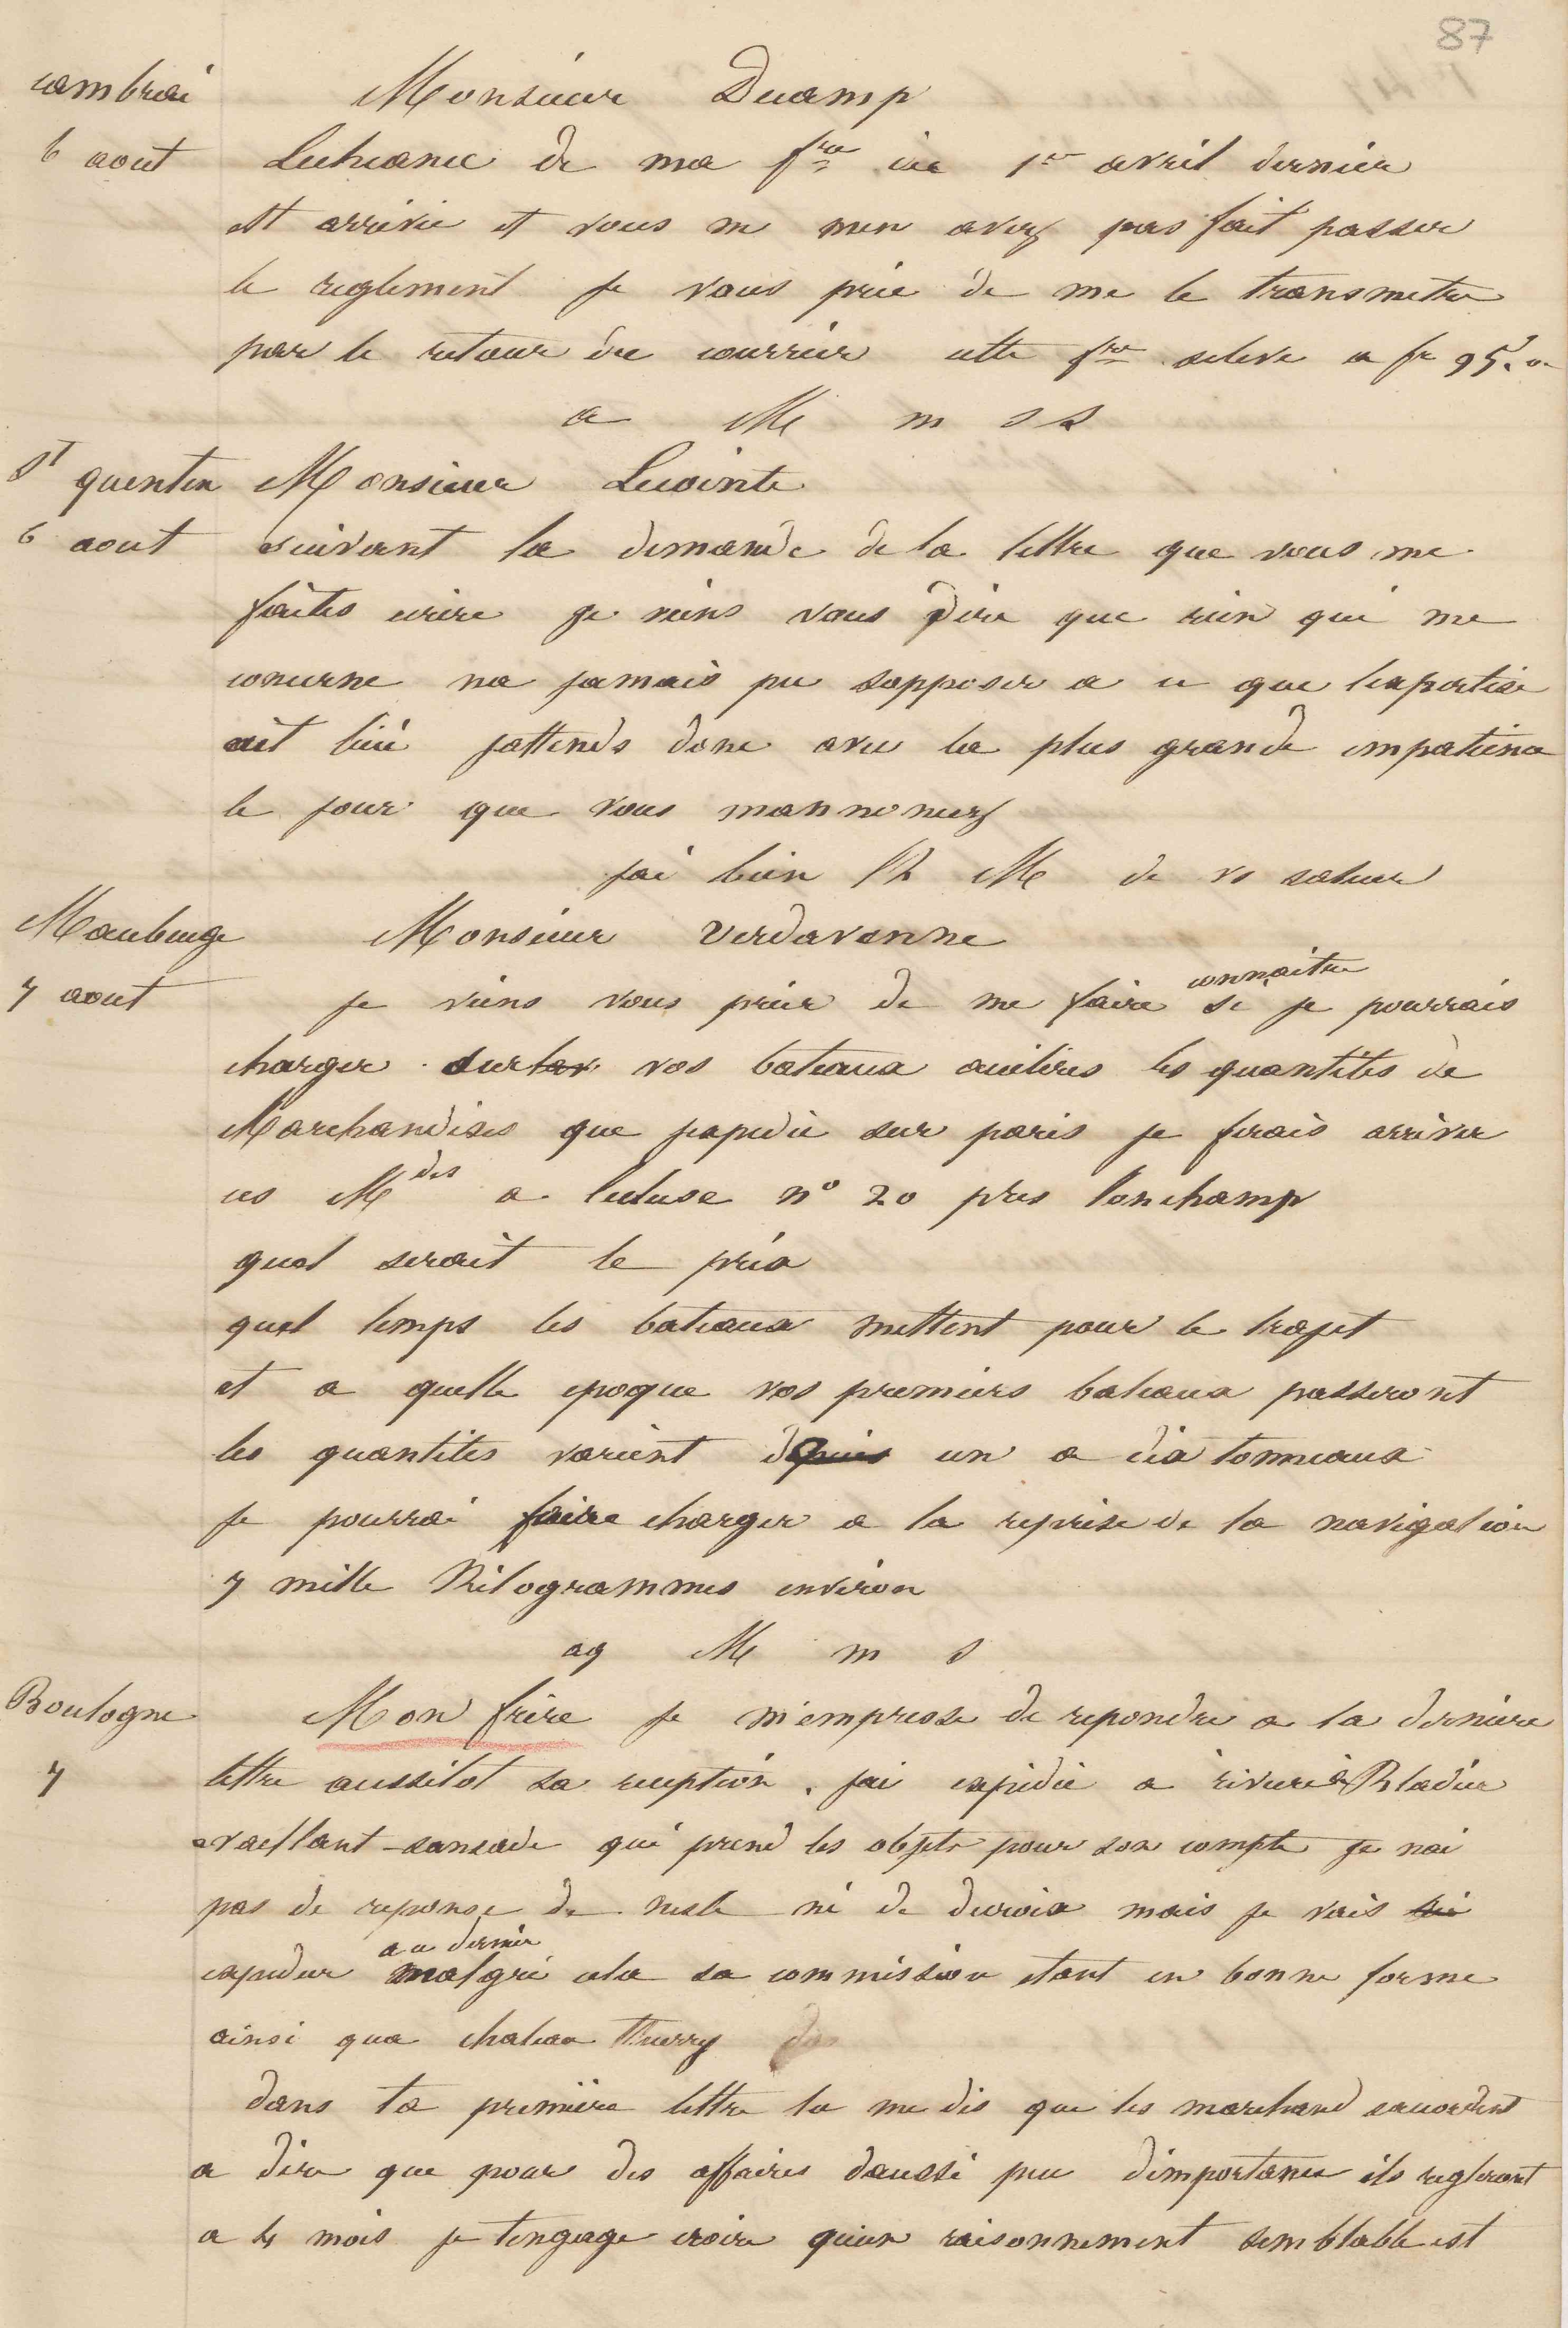 87
cambrai Monsieur Decamp
6 aout Lecheance de ma fre du 1er avril dernier
est arrivée et vous ne men avez pas fait passer
le reglement je vous prie de me le transmettre
par le retour du courrier cette fre seleve a fr 95.
a M m s
St quentin Monsieur Lecointe
6 aout suivant la demande de la lettre que vous me
faites ecrire je viens vous dire que rien qui me
concerne na jamais pu sopposer a ce que lexpertise
ait lieu jattends donc avec la plus grande impatience
le jour que vous mannoncerez
jai bien lh M de vs saluer
Maubeuge Monsieur Verdavenne
7 aout je viens vous prier de me faire connaitre si je pourrais
charger sur vos bateaux acilires les quantités de
Marchandises que jexpedie sur paris je ferais arriver
ces Mdes a lecluse n° 20 pres lonchamp
quel serait le prix
quel temps les bateaux mettent pour le trajet
et a quelle epoque vos premiers bateaux passeront
les quantites varient depuis un a dix tonneaux
je pourrai faire charger a la reprise de la navigation
7 mille Kilogrammes environ
ag M m s
Boulogne Mon frère je m'empresse de repondre a la derniere
7 lettre aussitot sa reception. jai expedié a riviere & Bladier
vaellant sansade qui prend les objets pour son compte je nai
pas de reponse de nesle ni de decroix mais je vais
au dernier
expedier malgré cela sa commission etant en bonne forme
ainsi qua chateau Thierry
dans ta premiere lettre tu me dis que les marchand saccordent
a dire que pour des affaires daussi peu dimportance ils regleront
a 4 mois je tengage croire quun raisonnement semblable est